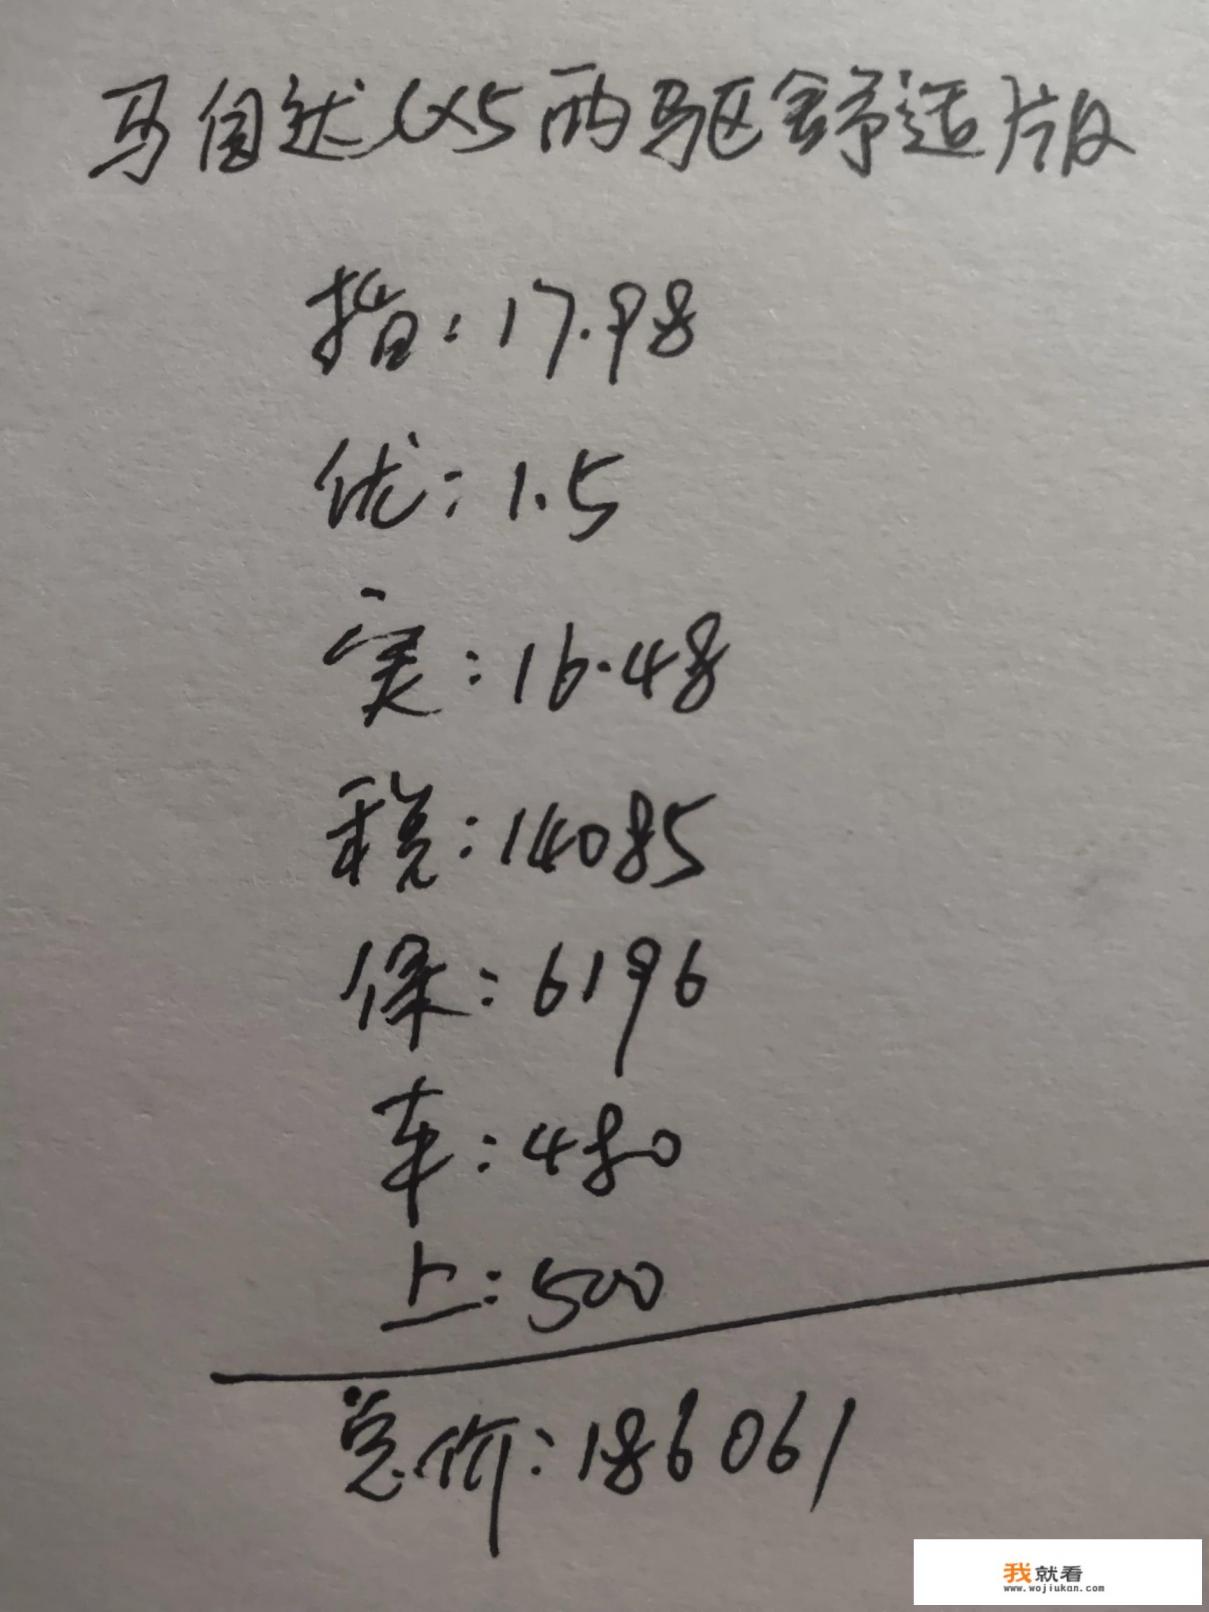 马自达CX5两驱舒适版
指:17.98
优:1.5
实:16.48
税:14085
保:6196
车:480
上:500
总价:186061
我就看
www.wojiukan.com